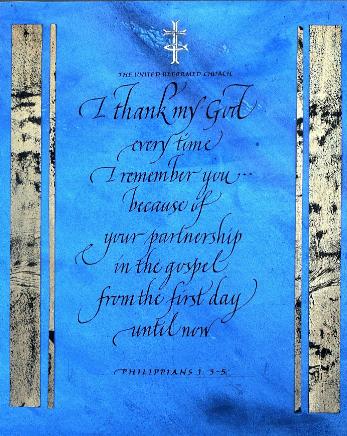 THE UNITED REFORMED CHURCH
I thank my God
every time
I remember you...
because of
your partnership
in the gospel
from the first day
until now
PHILIPPIANS 1. 3-5